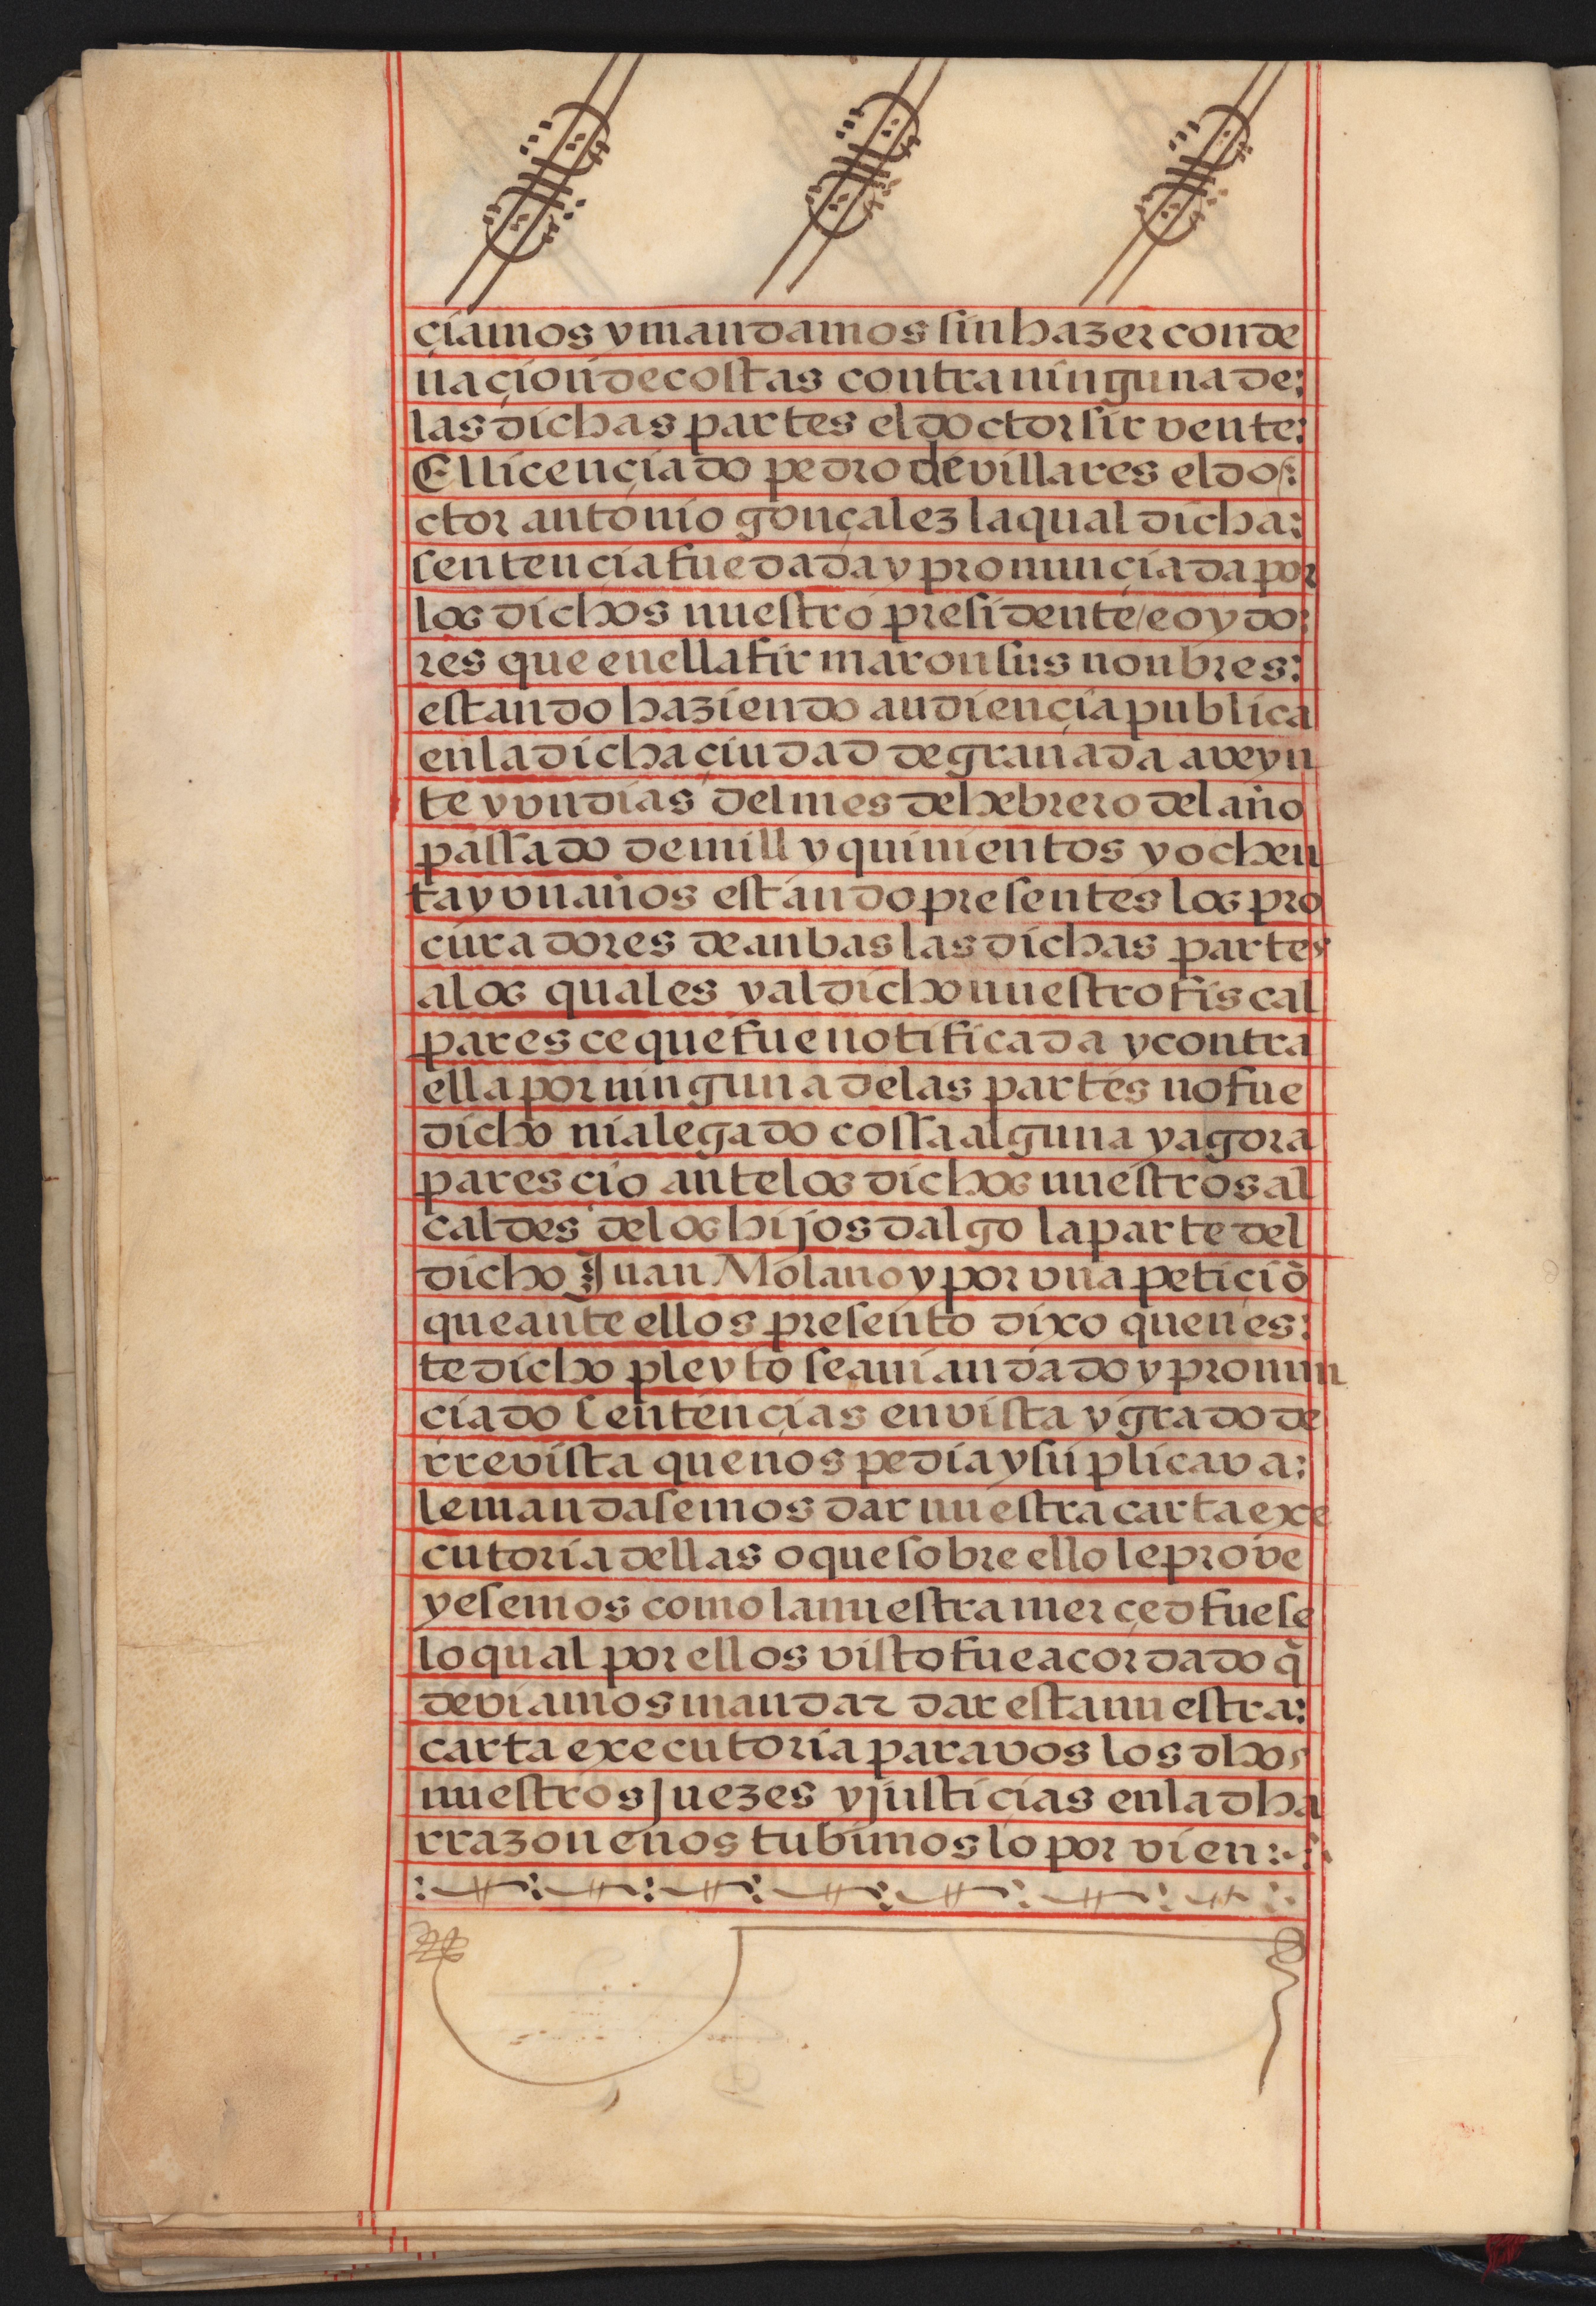 çiamos y mandamos sin hazer conde
naçion de costas contra ninguna de:
las dichas partes el doctor sirvente:
El licenciado pedro de villares el do:
ctor antonio gonçalez la qual dicha:
sentençia fue dada y pronunçiada por
los dichos nuestro presidente / e oydo:
res que en ella firmaron sus nonbres:
estando haziendo audiençia publica
en la dicha çiudad de granada a veyn
te y vn dias del mes de hebrero del año
passado de mill y quinientos y ochen
ta y vn años estando presentes los pro
curadores de anbas las dichas partes
a los quales y al dicho nuestro fiscal
paresce que fue notificada y contra
ella por ninguna de las partes no fue
dicho ni alegado cossa alguna y agora
parescio ante los dichos nuestros al
caldes de los hijosdalgo la parte del
dicho Juan Molano y por vna petiçiō
que ante ellos presento dixo quen es:
te dicho pleyto se avian dado y pronun
ciado sentençias en vista y grado de
rrevista que nos pedia y suplicava:
le mandasemos dar nuestra carta exe
cutoria dellas o que sobre ello le prove
yesemos como la nuestra merçed fuese
lo qual por ellos visto fue acordado q̃
deviamos mandar dar esta nuestra:
carta executoria para vos los dhos
nuestros Juezes y justicias en la dha
rrazon e nos tubimos lo por vien: